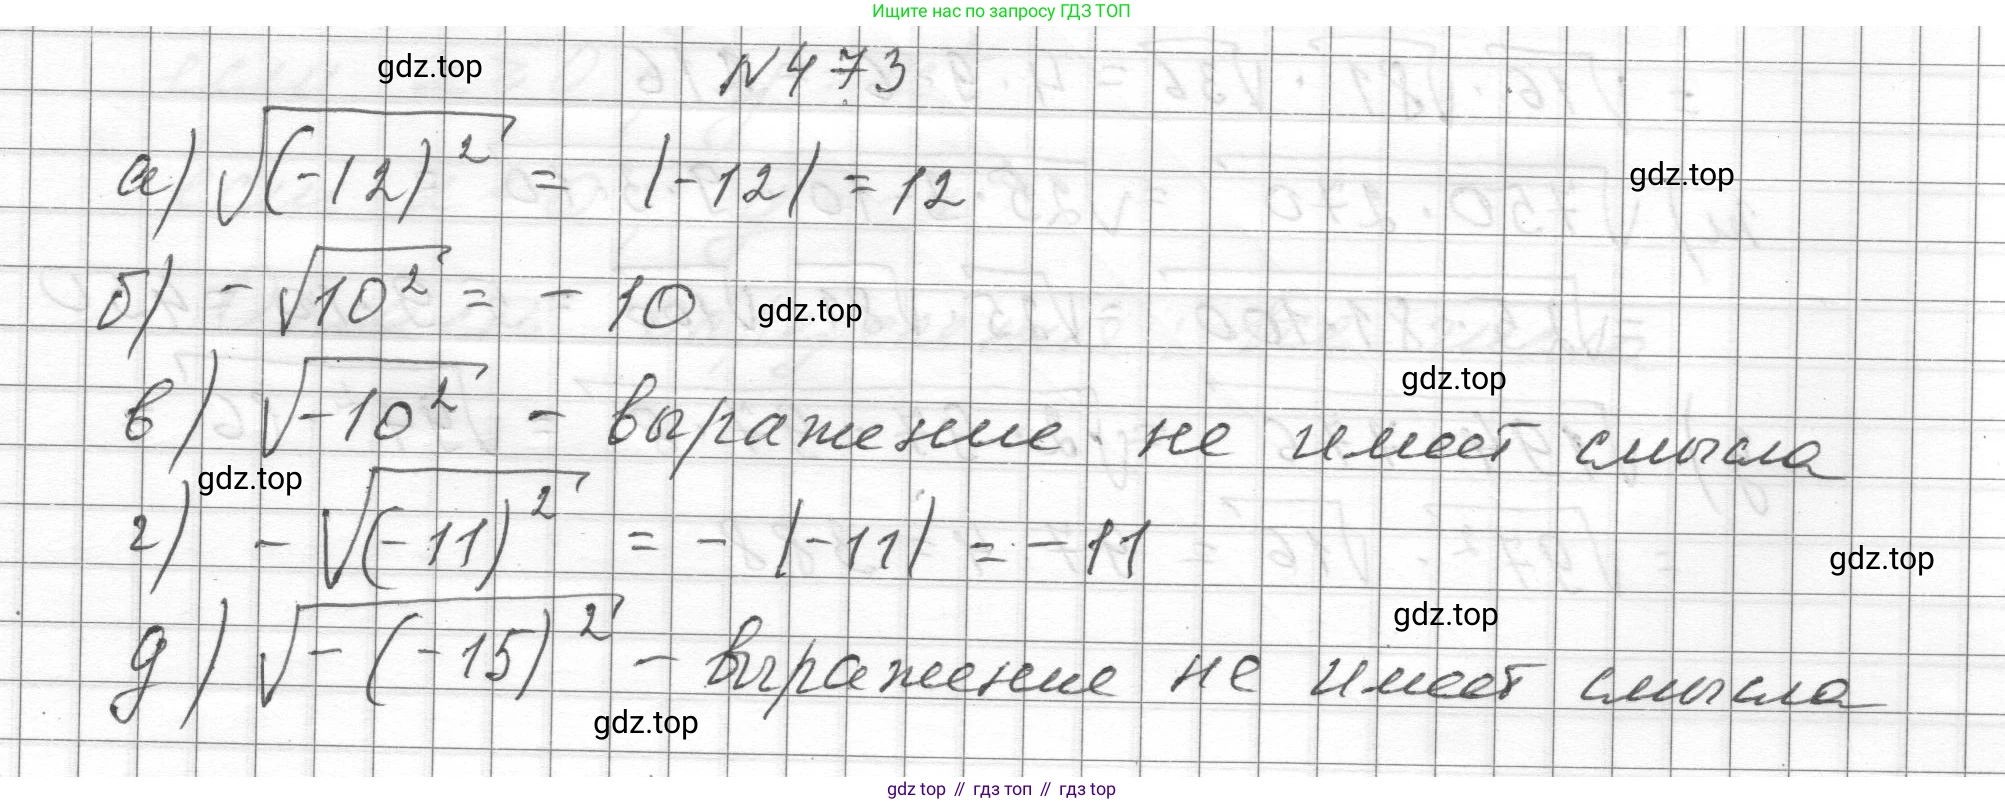 Ищите нас по запросу ГДЗ ТОП
gdz.top
N 473
а) √(-12)² = |-12| = 12
gdz.top
б) - √10² = - 10
gdz.top
gdz.top
в) √-10² - выражение не имеет смысла
gdz.top
г) - √(-11)² = - |-11| = -11
gdz.top
gdz.top
д) √-(-15)² - выражение не имеет смысла
gdz.top
gdz top // гдз топ // gdz top